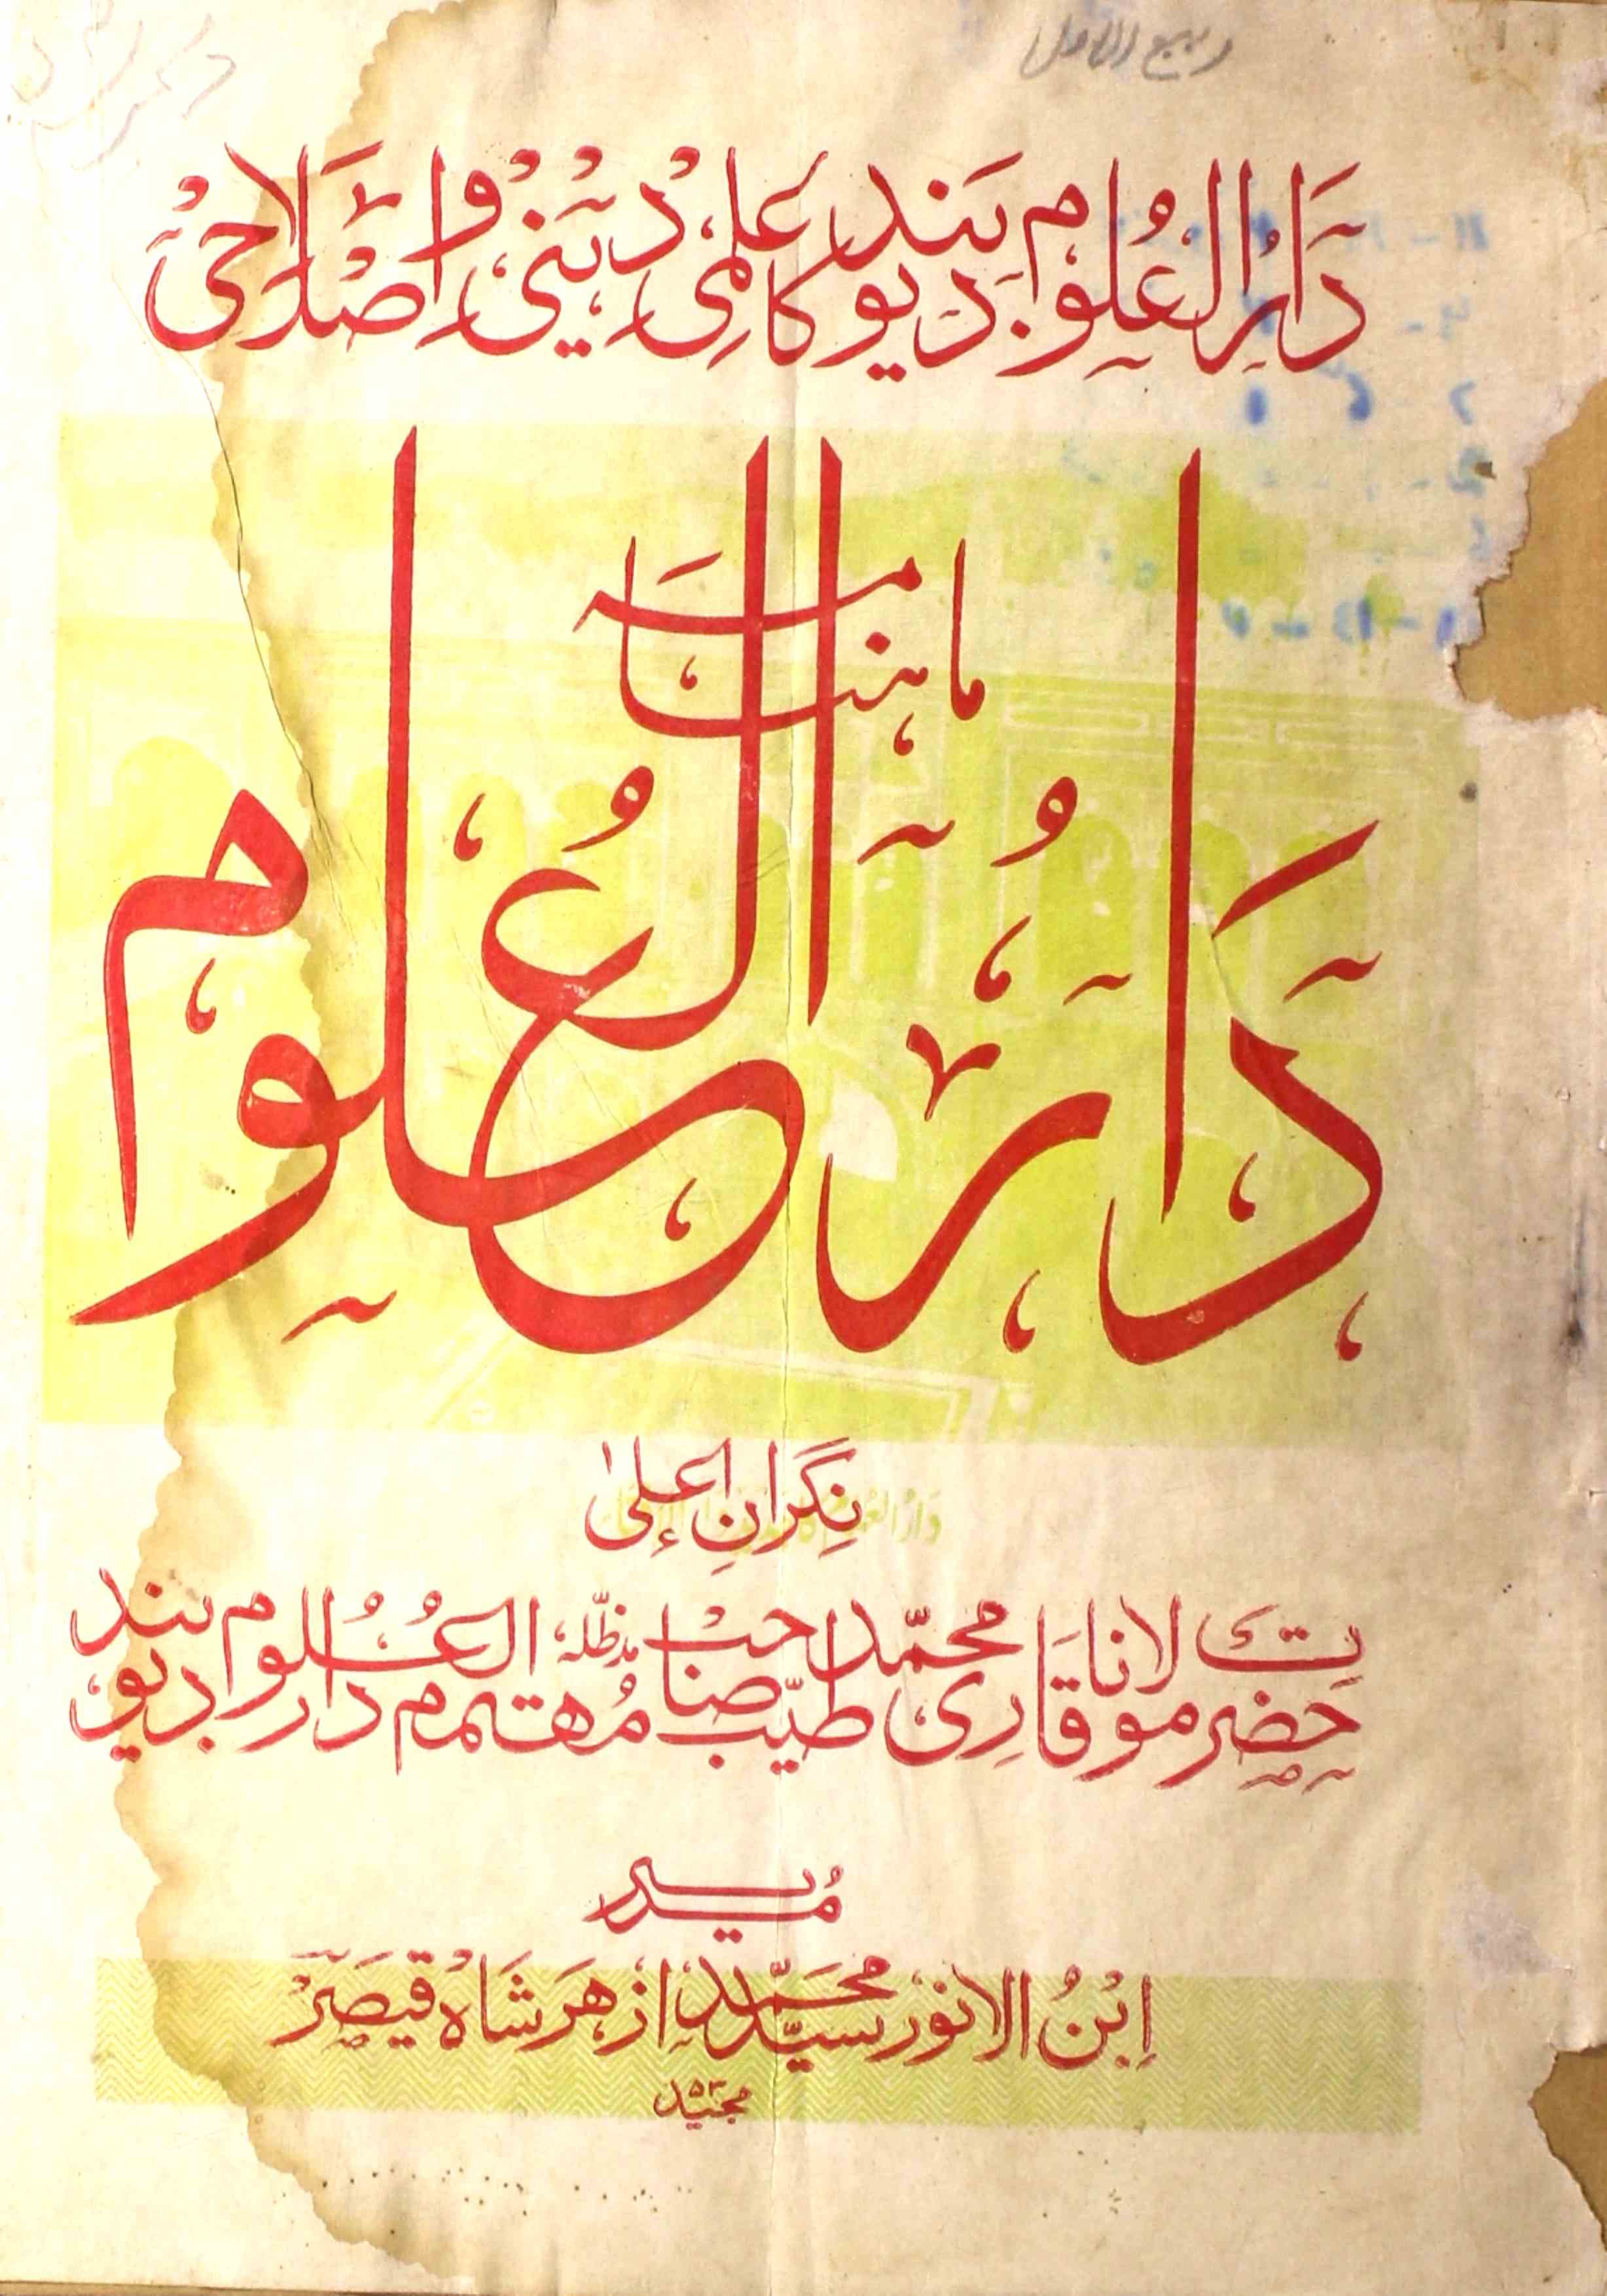 ربیع الاول
دَارُ العُلوم دیوبَند کا عِلمی دینی و اصلاحی
ماہنامہ
دَارُ العُلوم
نِگرانِ اعلیٰ
حضرت مولانا قاری محمّد طیّب صاحب مدظلّہ مُہتمم دار العُلوم دیوبند
مُدیر
اِبنُ الانور سیّد محمّد ازہر شَاہ قیصَر